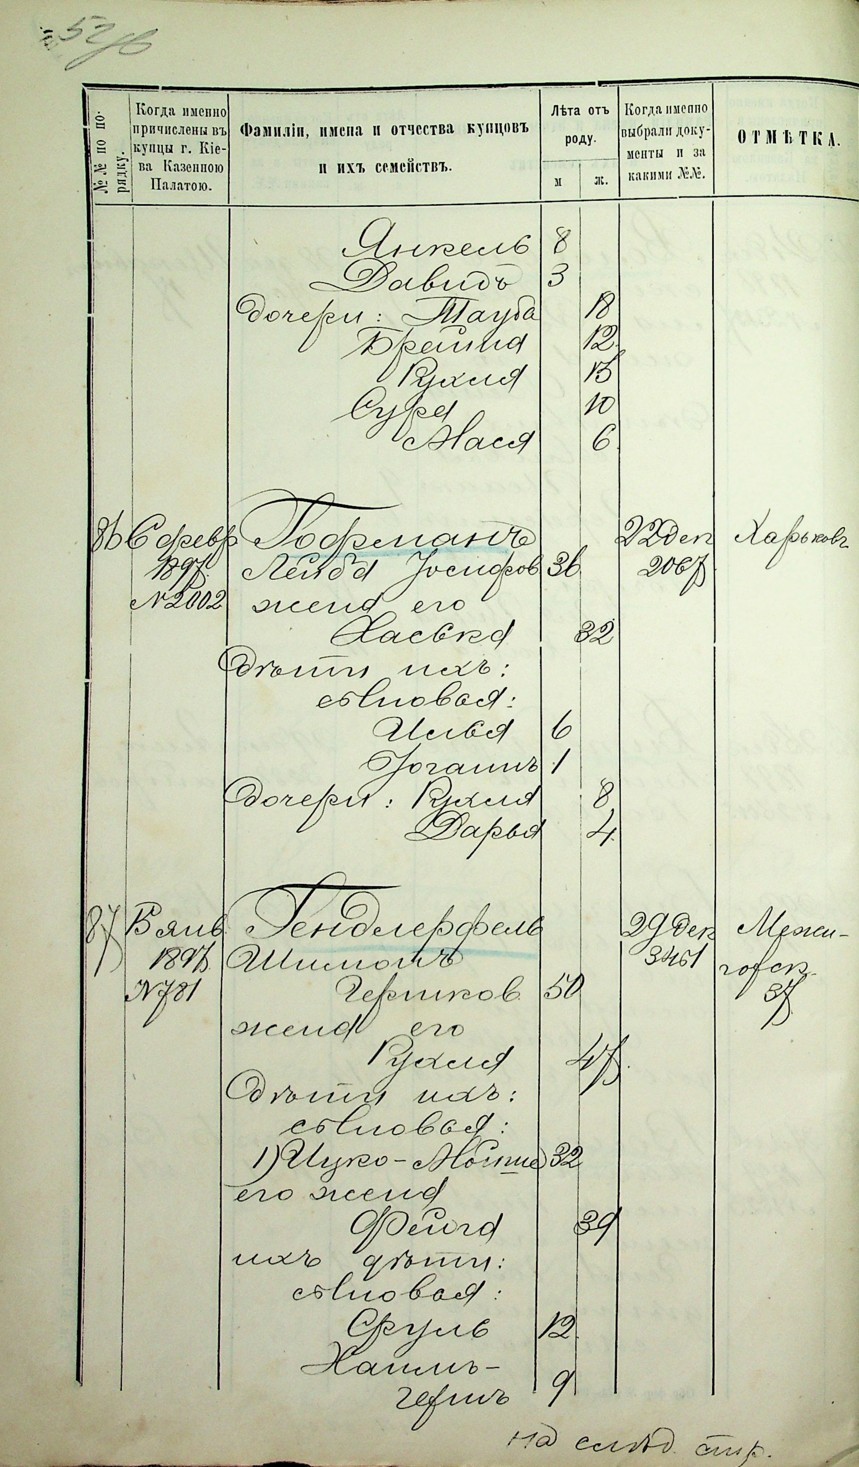 52об
№№ по по-
рядку.
Когда именно
причислены въ
купцы г. Кіе-
ва Казенною
Палатою.
Фамиліи, имена и отчества купцовъ
и ихъ семействъ.
Лѣта отъ
роду.
м ж.
Когда именно
выбрали доку-
менты и за
какими №№.
ОТМѢТКА.
Янкель 8
Давидъ 3
дочери: Тауба 18
Брейна 12
Рухля 13
Сура 10
Мася 6
86 6 февр Гофманъ 22 дек Харьков
1897 Лейба Іосифов 36 2067
№2002 жена его
Хаська 32
Дѣти ихъ:
сыновья:
Илья 6
Іоганъ 1
Дочери: Рухля 8
Дарья 4
87 13 янв Гендлерфель 29 дек Межи-
1897 Шимонъ 3461 горск.
№781 Гершков 50 37
жена его
Рухля 47
Дѣти ихъ:
сыновья:
1) Ицко-Мойше 32
его жена
Фейга 39
ихъ дѣти:
сыновья:
Сруль 12
Хаимъ-
гершъ 9
на слѣд. стр.